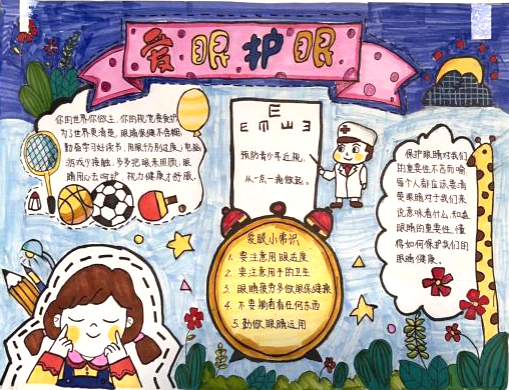 爱眼护眼
你的世界你做主,你的视觉要爱护
为了世界更清楚,眼睛保健不含糊
勤奋学习好读书,用眼切勿过度,电脑
游戏少接触,多多把眼来照顾,眼
睛用心去呵护,视力健康才舒服。
E
E m W 3
预防青少年近视,
从一点一滴做起。
保护眼睛对我们
的重要性不言而喻
每个人都应该要清
楚眼睛对于我们来
说意味着什么,知道
眼睛的重要性,懂
得如何保护我们的
眼睛健康。
爱眼小常识
1. 要注意用眼适度
2. 要注意用手的卫生
3. 眼睛疲劳多做眼保健操
4. 不要躺着看任何东西
5. 勤做眼睛运用